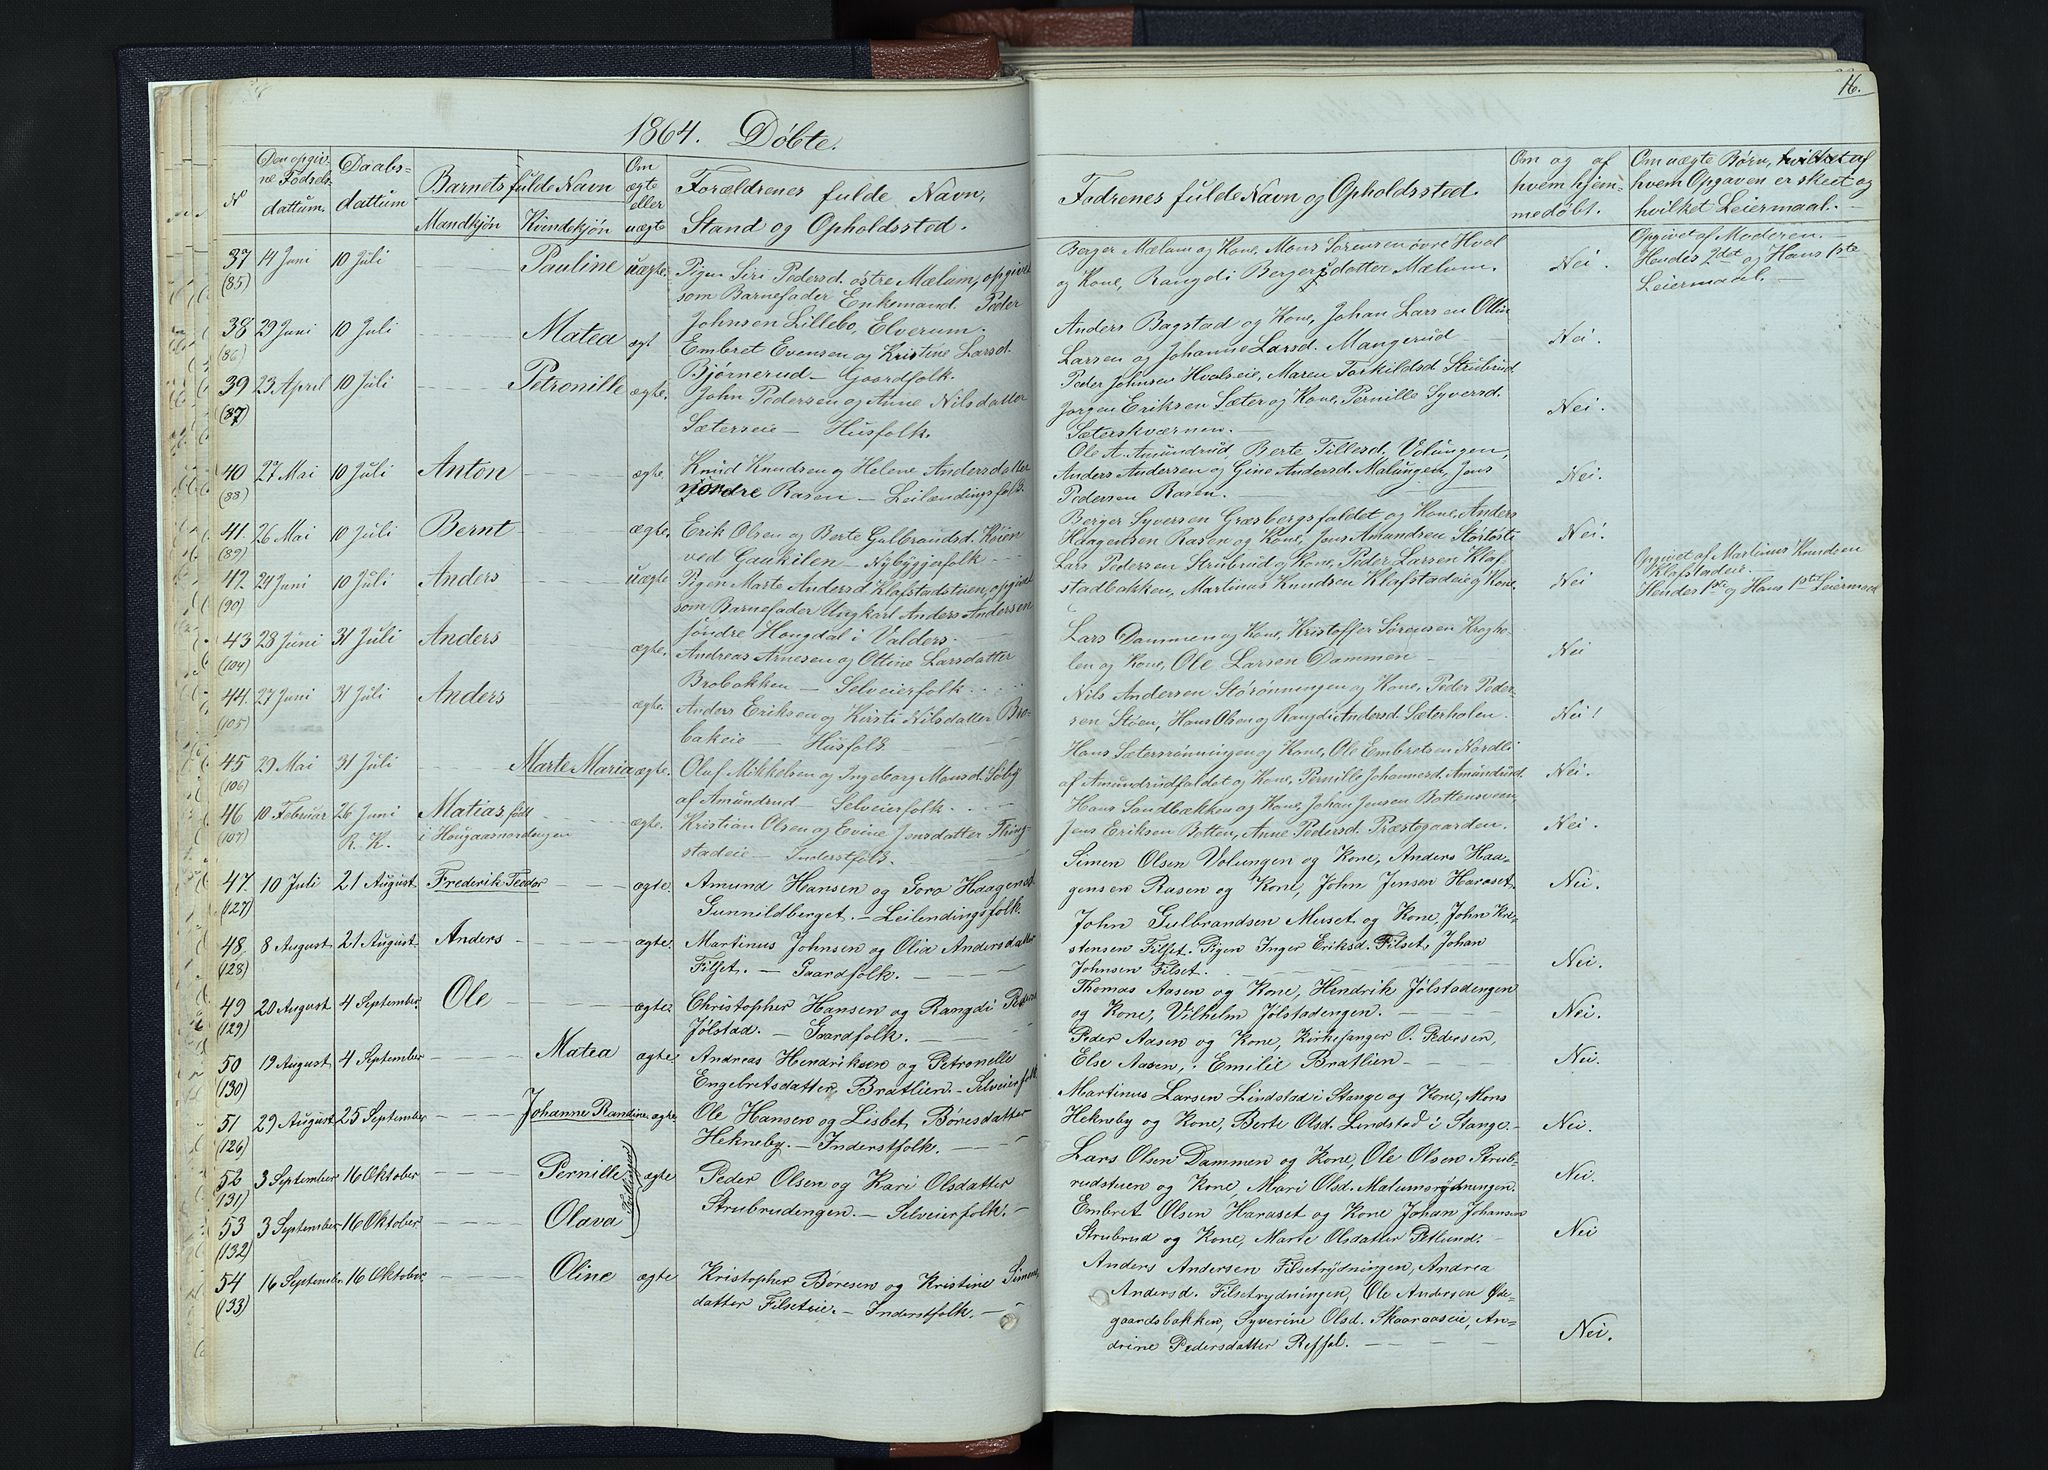 1864. Døbte.
N
Den opgiv-
ne Fødsels-
dattum.
Daabs-
dattum
Barnets fulde Navn
Mandkjøn
Kvindekjøn
Om
ægte
eller
uægte
Forældrenes fulde Navn,
Stand og Opholdssted.
37
(85)
14 Juni
10 Juli
Pauline
uægte.
Pigen Siri Pedersd. østre Mælum, opgivet
som Barnefader Enkemand Peder
Johnsen Lillebo, Elverum.
38
(86)
29 Juni
10 Juli
Matea
ægt
Embret Evensen og Kristine Larsd.
Bjørnerud – Gaardfolk.
39
(87)
23 April
10 Juli
Petronille
ægte.
John Pedersen og Anne Nilsdatter
Sæterseie – Husfolk.
40
(88)
27 Mai
10 Juli
Anton
ægte.
Knud Knudsen og Helene Andersdatter
søndre Rasen – Leilændingsfolk.
41.
(89)
26 Mai
10 Juli
Bernt
ægte.
Erik Olsen og Berte Gulbrandsd. Koien
ved Gaukilen – Nybyggerfolk
42
(90)
24 Juni
10 Juli
Anders
uægte
Pigen Marte Andersd. Klafstadstuen, opgivet
som Barnefader Ungkarl Anders Andersen
søndre Hougdal i Valders.
43
(104)
28 Juni
31 Juli
Anders
ægte.
Andreas Arnesen og Ottine Larsdatter
Brobakken – Selveierfolk.
44.
(105)
27 Juni
31 Juli
Anders
ægte.
Anders Eriksen og Kirsti Nilsdatter Bro-
bakeie – Husfolk
45
(106)
29 Mai
31 Juli
Marte Maria
ægte.
Oluf Mikkelsen og Ingeborg Monsd. Søby
af Amundrud – Selveierfolk.
46
(107)
10 Februar
26 Juni
R. K.
Matias, født
i Hougaasnordengen
ægte.
Kristian Olsen og Evine Jensdatter Thing-
stadeie – Inderstfolk.
47.
(127)
10 Juli
21 August
Frederik Teodor
ægte.
Amund Hansen og Goro Haagensd.
Gunnildberget. – Leilendingsfolk.
48.
(128)
8 August
21 August
Anders
ægte.
Martinus Johnsen og Olia Andersdatter
Filset. – Gaardfolk.
49
(129)
20 August
4 September.
Ole
ægte.
Christopher Hansen og Rangdi Peders
Jølstad. – Gaardfolk.
50
(130)
19 August
4 September
Matea
ægte.
Andreas Hendriksen og Petronelle
Engebretsdatter, Bratlien. – Selveierfolk
51
(126)
29 August
25 September
Johanne Randine
ægte.
Ole Hansen og Lisbet Børresdatter
Hekneby. – Inderstfolk.
52
(131)
3 September
16 Oktober
Pernille
Tvillinger
ægte
Peder Olsen og Kari Olsdatter
Strubrudengen. – Selveierfolk.
53
(132)
3 September
16 Oktober
Olava
54
(133)
16 September
16 Oktober.
Oline
ægte
Kristopher Børesen og Kristine Simens
datter Filseteie. – Inderstfolk.
16.
Fadrenes fulde Navn og Opholdssted.
Om og af
hvem hjem-
medøbt.
Om uægte Børn, hvilket af
hvem Opgaven er skeet og
hvilket Leiermaal.
Berger Mælum og Kone, Mons Sørensen øvre Hval
og Kone, Rangdi Bergersdatter Mælum.
Nei.
Opgivet af Moderen.
Hendes 2det og Hans 1ste
Leiermaal.
Anders Bagstad og Kone, Johan Larsen Ottin
Larsen og Johanne Larsd. Mangerud
Nei.
Peder Johnsen Hvalseie, Maren Torkildsd Strubrud
Jørgen Eriksen Sæter og Kone, Pernille Syversd.
Sæterskværnen.
Nei.
Ole A. Amundrud Berte Tillesd. Volungen,
Anders Andersen og Gine Andersd. Malungen, Jens
Pedersen Rasen.
Nei.
Berger Syversen Græsbergsfaldet og Kone, Anders
Haagensen Rasen og Kone, Jens Amundsen Størtøsti
Nei.
Lars Pedersen Strubrud og Kone, Peder Larsen Klaf
stadbakken, Martinus Knudsen Klafstadeie og Kone.
Nei
Opgivet af Martinus Knudsen
Klafstadeie.
Hendes 1ste og Hans 1ste Leiermaal
Lars Dammen og Kone, Kristoffer Sørensen Krogho-
len og Kone, Ole Larsen Dammen
Nei
Nils Andersen Størønningen og Kone, Peder Peder-
sen Støen, Hans Olsen og Rangdi Andersd. Sæterholen.
Nei!
Hans Sætersrønningen og Kone, Ole Embretsen Nordli
af Amundrudfaldet og Kone, Pernille Johannesd. Amundrud
Nei.
Hans Sandbækken og Kone, Johan Jensen Bottensveen,
Jens Eriksen Botten, Anne Pedersd. Præstegaarden.
Nei.
Simen Olsen Volungen og Kone, Anders Haa-
gensen Rasen og Kone, John Jensen Haraset
Nei.
John Gulbrandsen Muset og Kone, John Kri-
stensen Filset. Pigen Inger Eriksd. Filset, Johan
Johnsen Filset.
Nei.
Thomas Aasen og Kone, Hendrik Jølstadengen
og Kone, Vilhelm Jølstadengen.
Nei.
Peder Aasen og Kone, Kirkesanger O. Pedersen,
Else Aasen, Emilie Bratlien
Nei.
Martinus Larsen Lindstad i Stange og Kone, Mons
Hekneby og Kone, Berte Olsd. Lindstad i Stange.
Nei.
Lars Olsen Dammen og Kone, Ole Olsen Strub-
rudstuen og Kone, Mari Olsd. Mælumsrydningen.
Nei.
Embret Olsen Haraset og Kone Johan Johansen
Strubrud og Kone, Marte Olsdatter Petlund.
Nei
Anders Andersen Filsetrydningen, Andrea
Andersd. Filsetrydningen, Ole Andersen Øde-
gaardsbakken, Syverine Olsd. Skaaraaseie, An-
drine Pedersdatter Reffal.
Nei.